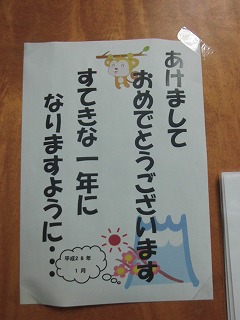 あけまして
おめでとうございます
すてきな一年に
なりますように…
平成28年
1月